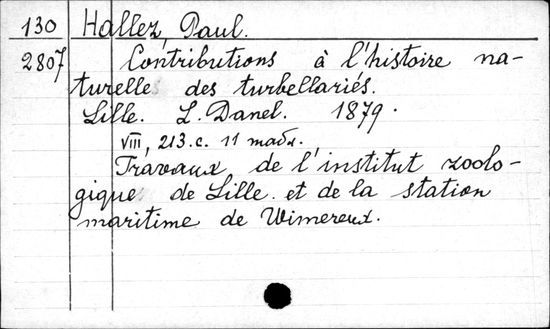 130 Hallez, Paul.
2807 Contributions à l'histoire na-
turelle des turbellariés.
Lille. L. Danel. 1879.
VIII, 213.c. 11 табл.
Travaux de l'institut zoolo-
gique de Lille et de la station
maritime de Wimereux.